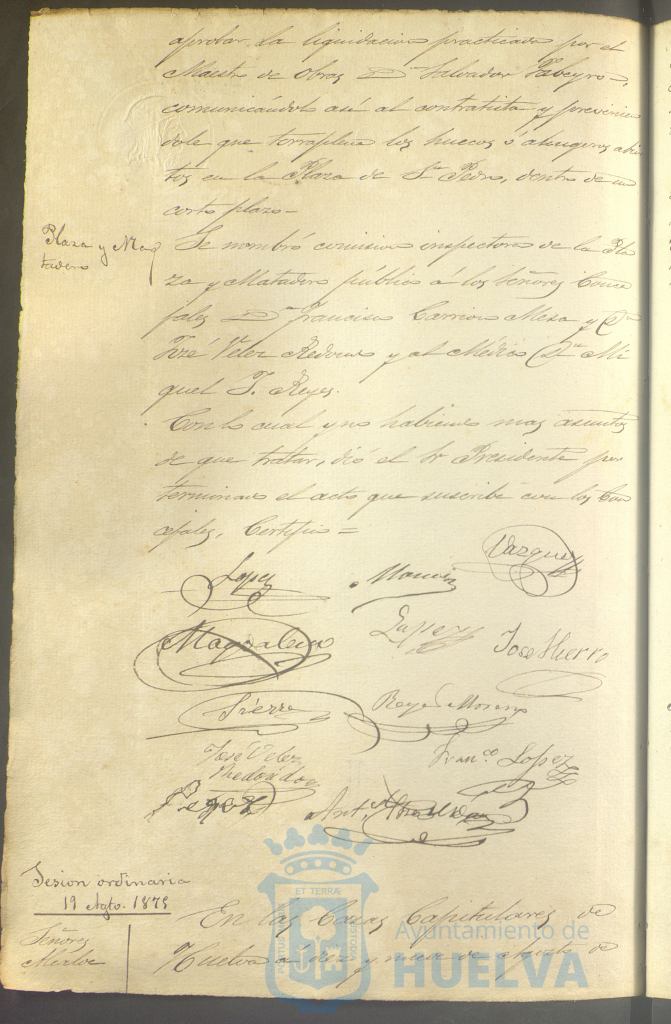 aprobar la liquidacion practicada por el
Maestro de obras Dn Salvador
comunicandolo asi al contratista y previnien
dole que terraplene los huecos ó abugeros abier
tos en la Plaza de Sn Pedro, dentro de un
corto plazo=
Plaza y Ma
tadero
Se nombró comision inspectora de la Pla
za y Matadero público á los Señores Conce
jales Dn Francisco Carrion Mesa y Dn
José Velez Redondo y al Médico Dn Mi
guel T. Reyes.
Con lo cual y no habiendo mas asuntos
de que tratar, dió el Sr Presidente por
terminado el acto que suscribe con los Con
cejales. Certifico=
Vazquez
Lopez
Magdalena
Lopez
José Hierro
Reyes Moreno
José Velez
Redondo
Franco. Lopez
Ant.
Sesion ordinaria
19 Agto. 1875
Señores
En las Casas Capitulares de
Huelva á diez y nueve de Agosto de
ET TERRÆ
PORTUS
CUSTODIA
Ayuntamiento de
HUELVA